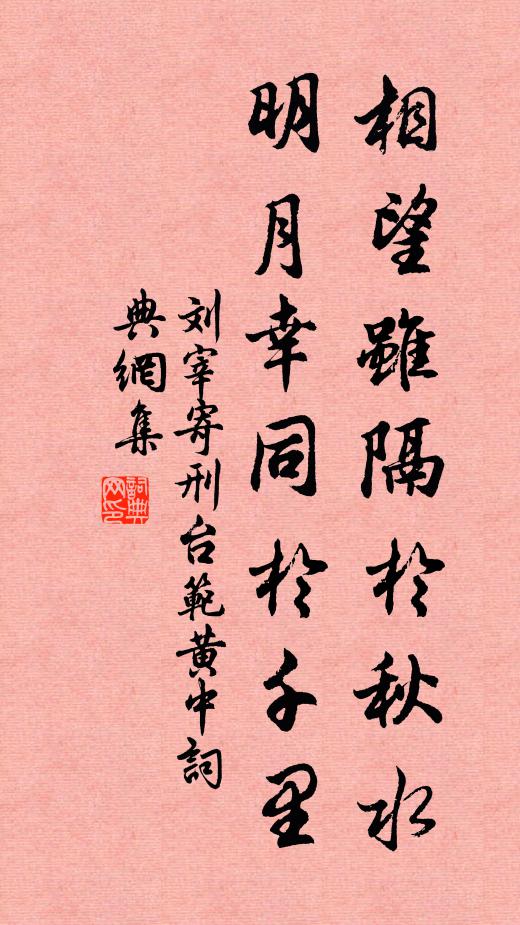 相望雖隔於秋水
明月幸同於千里
刘宰寄刑台範黄中詞
典網集
詞典网印